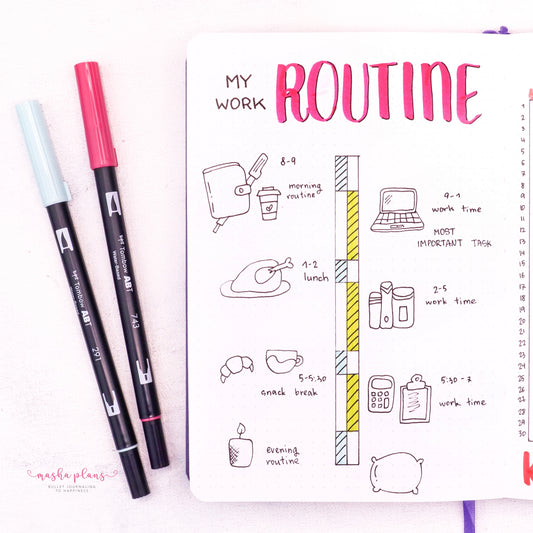 MY
WORK
ROUTINE
8-9
morning
routine
9-1
work time
MOST
IMPORTANT TASK
1-2
lunch
2-5
work time
5-5:30
snack break
5:30-7
work time
evening
routine
1
2
3
4
5
6
7
8
9
10
11
12
13
14
15
16
17
18
19
20
21
22
23
24
25
26
27
28
29
30
K
Tombow ABT
291
Tombow ABT
743
masha plans
BULLET JOURNALING
TO HAPPINESS